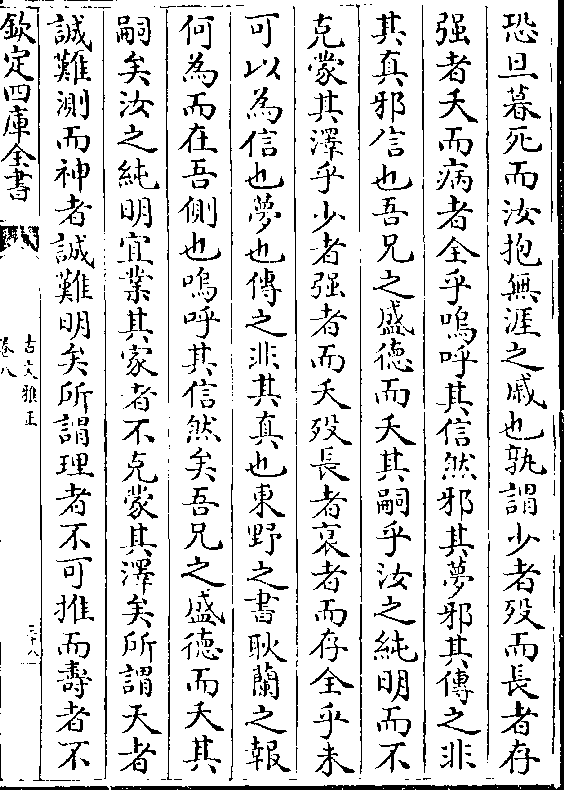 恐旦暮死而汝抱無涯之戚也孰謂少者歿而長者存
强者夭而病者全乎嗚呼其信然邪其夢邪其傳之非
其真邪信也吾兄之盛德而夭其嗣乎汝之純明而不
克蒙其澤乎少者强者而夭歿長者衰者而存全乎未
可以為信也夢也傳之非其真也東野之書耿蘭之報
何為而在吾側也嗚呼其信然矣吾兄之盛德而夭其
嗣矣汝之純明宜業其家者不克蒙其澤矣所謂天者
誠難測而神者誠難明矣所謂理者不可推而壽者不
欽定四庫全書
古文雅正
卷八
三十八